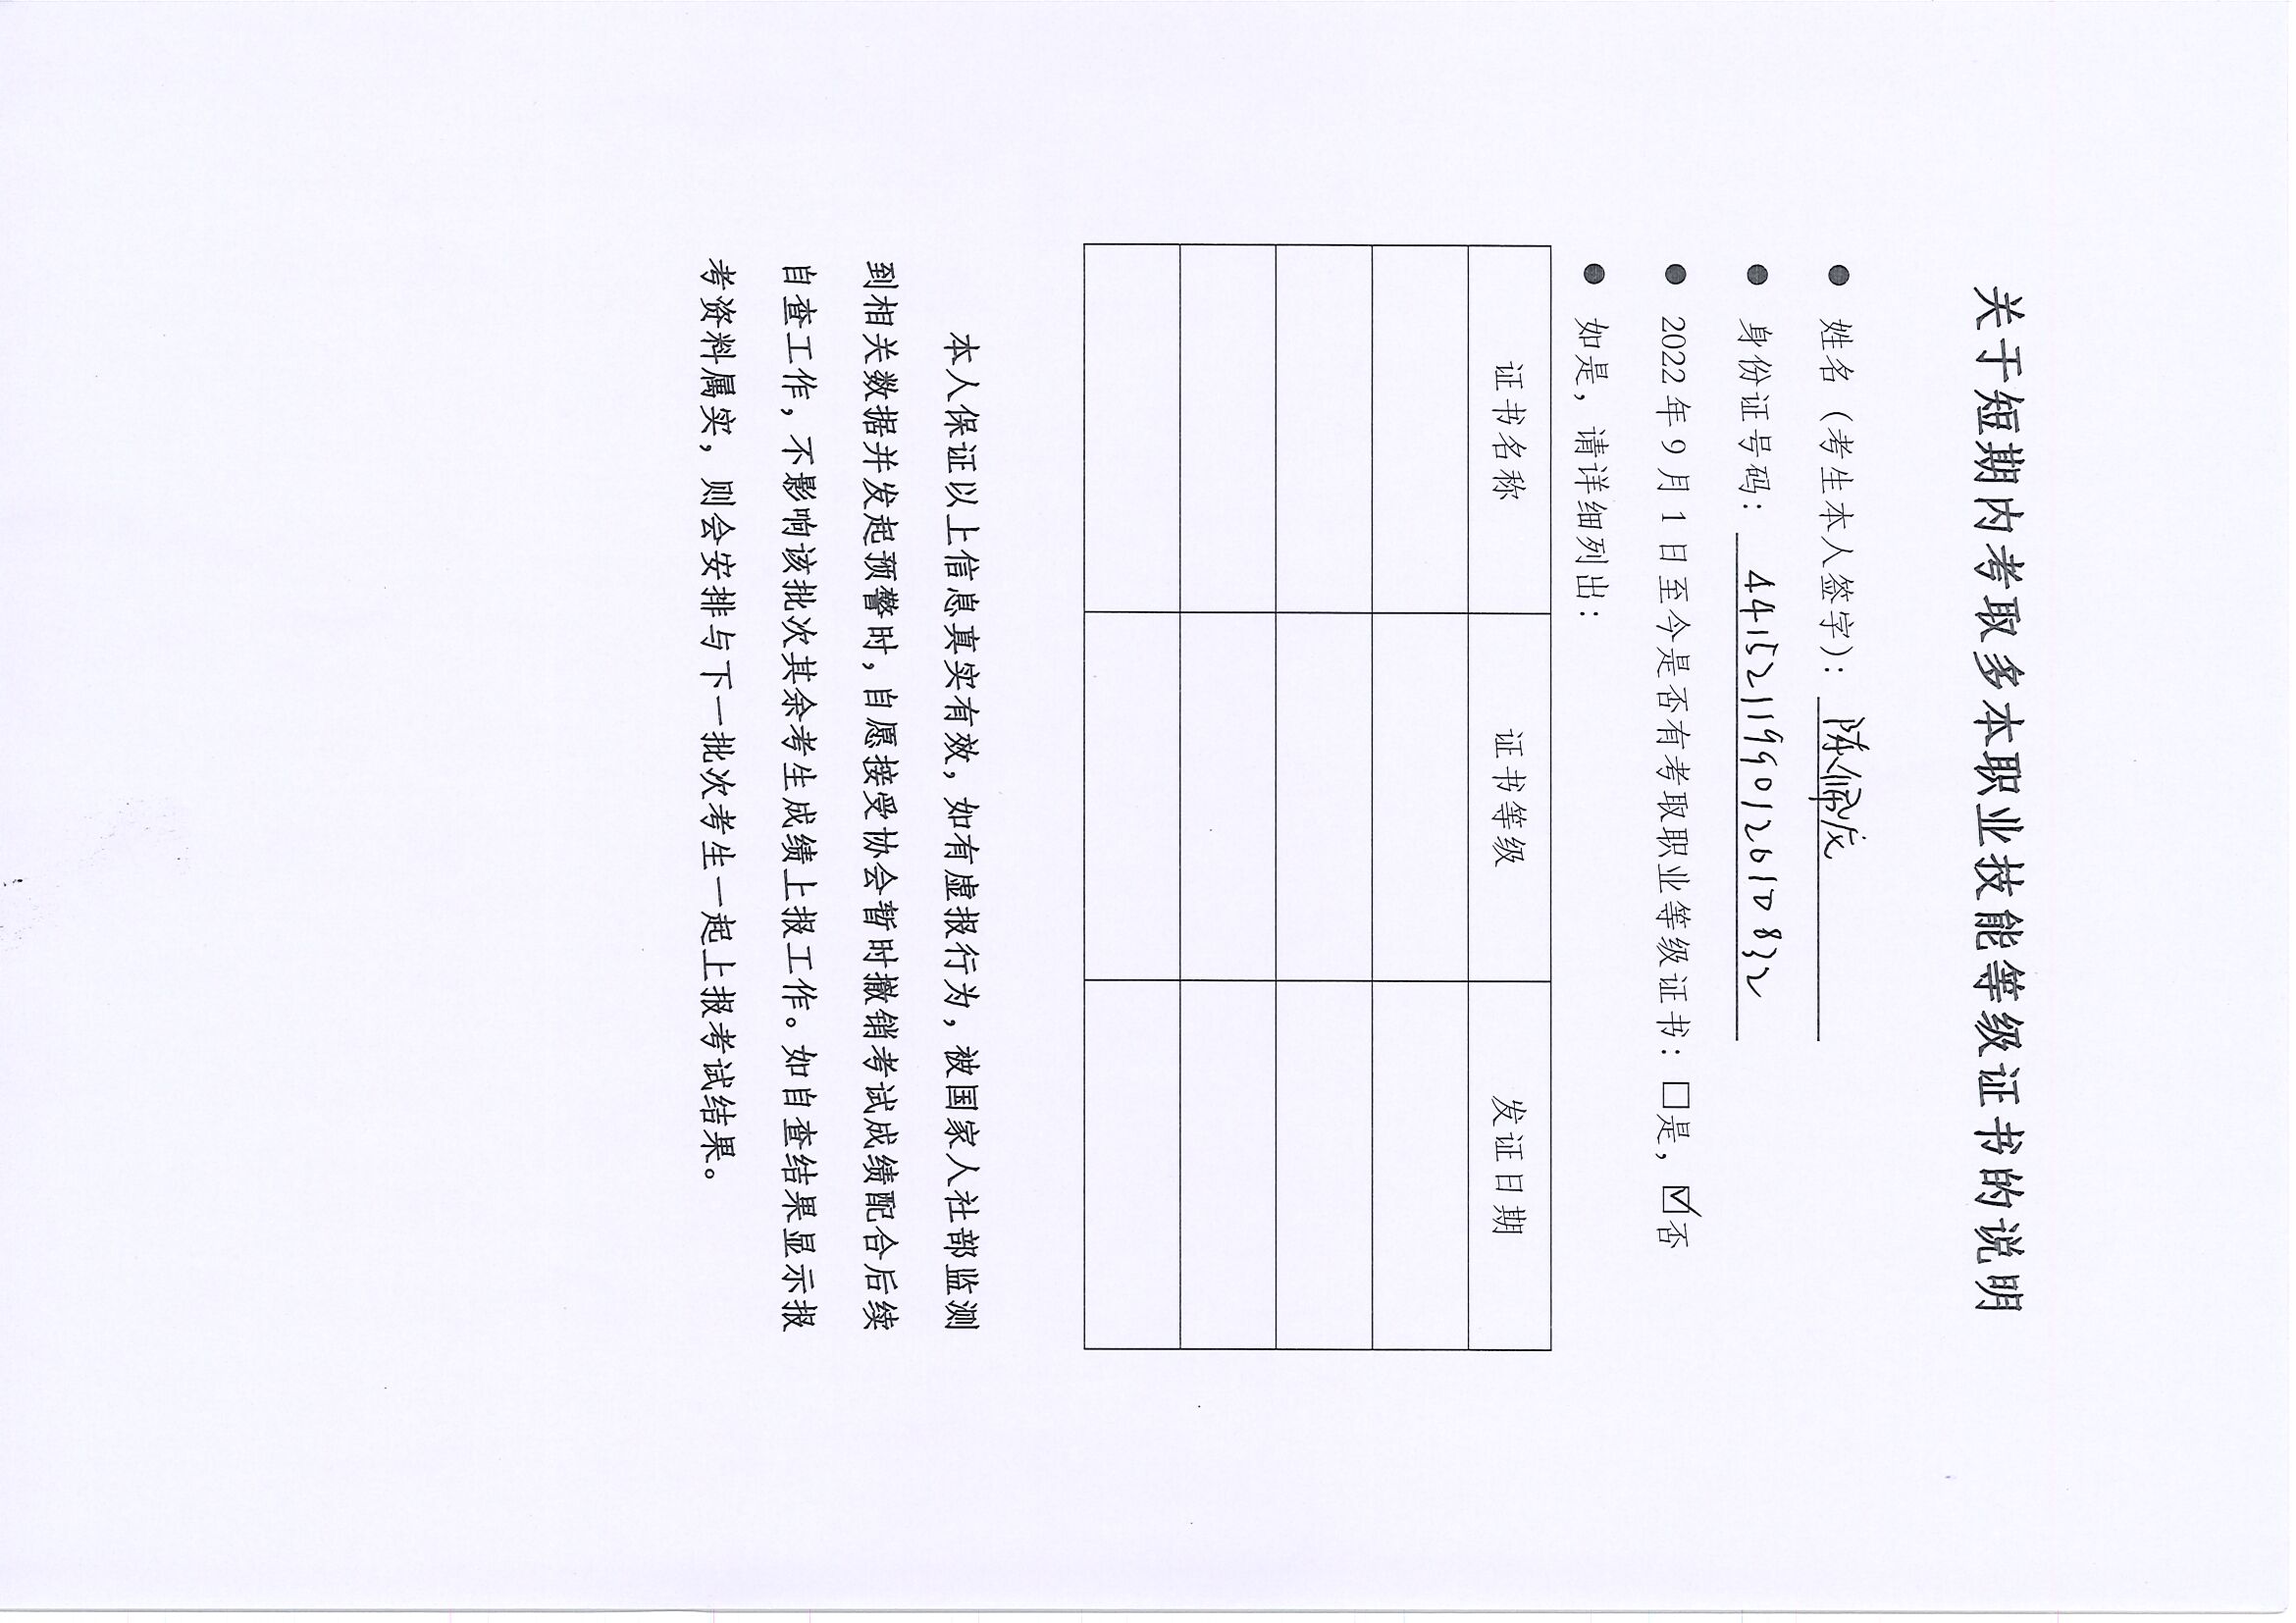 关于短期内考取多本职业技能等级证书的说明
● 姓名（考生本人签字）： 陈佩茂
● 身份证号码： 441521199012610832
● 2022 年 9 月 1 日至今是否有考取职业等级证书：□是，☑否
● 如是，请详细列出：
证书名称 证书等级 发证日期
本人保证以上信息真实有效，如有虚报行为，被国家人社部监测
到相关数据并发起预警时，自愿接受协会暂时撤销考试成绩配合后续
自查工作，不影响该批次其余考生成绩上报工作。如自查结果显示报
考资料属实，则会安排与下一批次考生一起上报考试结果。